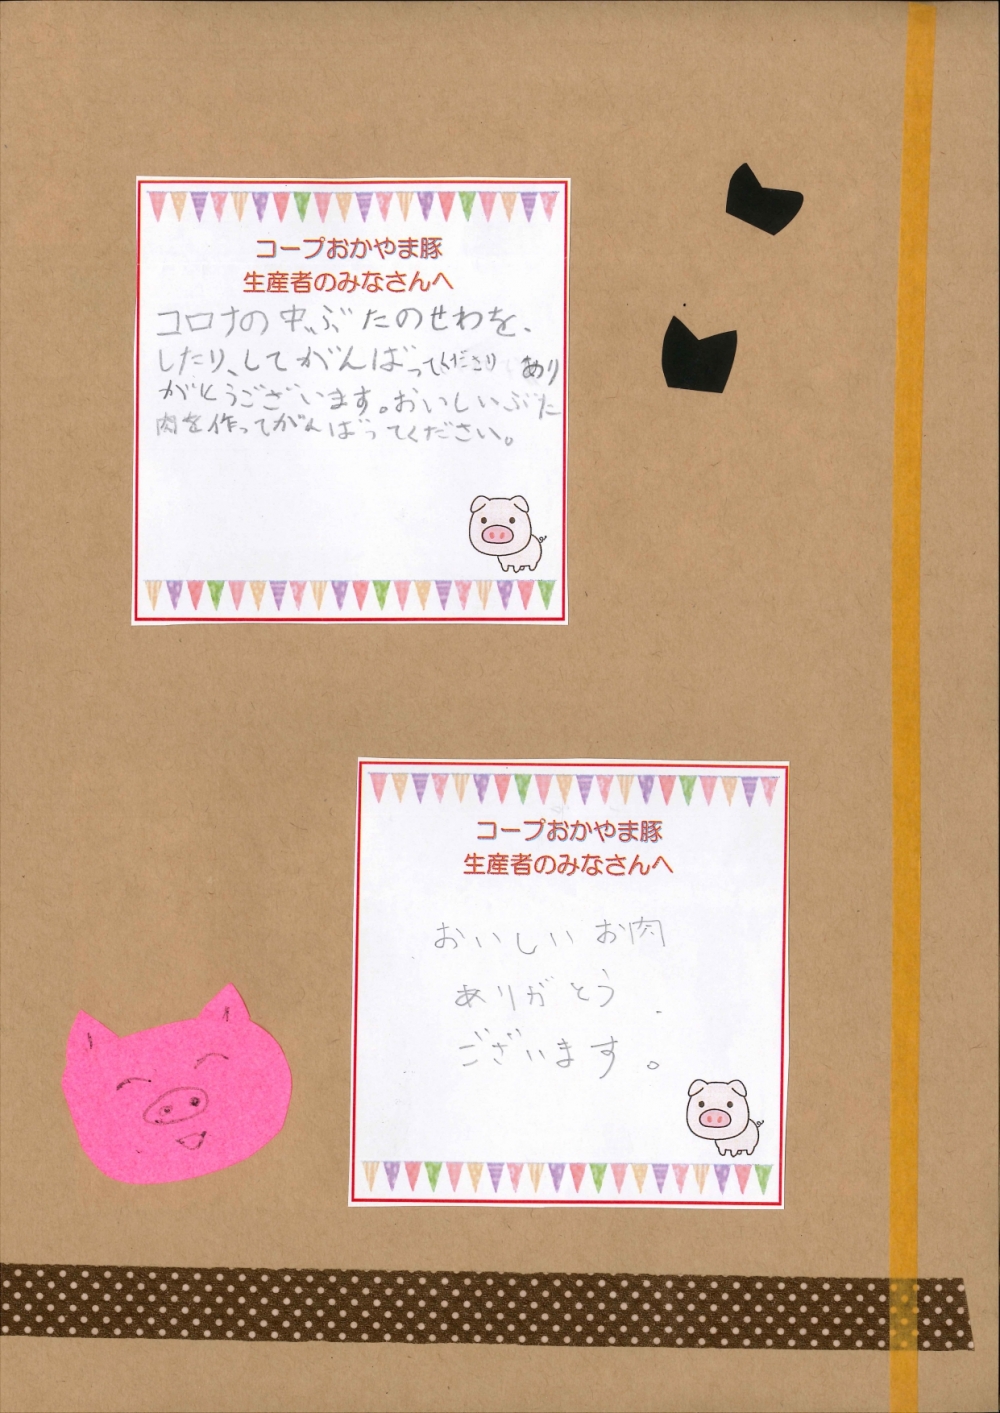 コープおかやま豚
生産者のみなさんへ
コロナの中、ぶたのせわを、
したり、してがんばってくださり あり
がとうございます。おいしいぶた
肉を作ってがんばってください。
コープおかやま豚
生産者のみなさんへ
おいしいお肉
ありがとう
ございます。